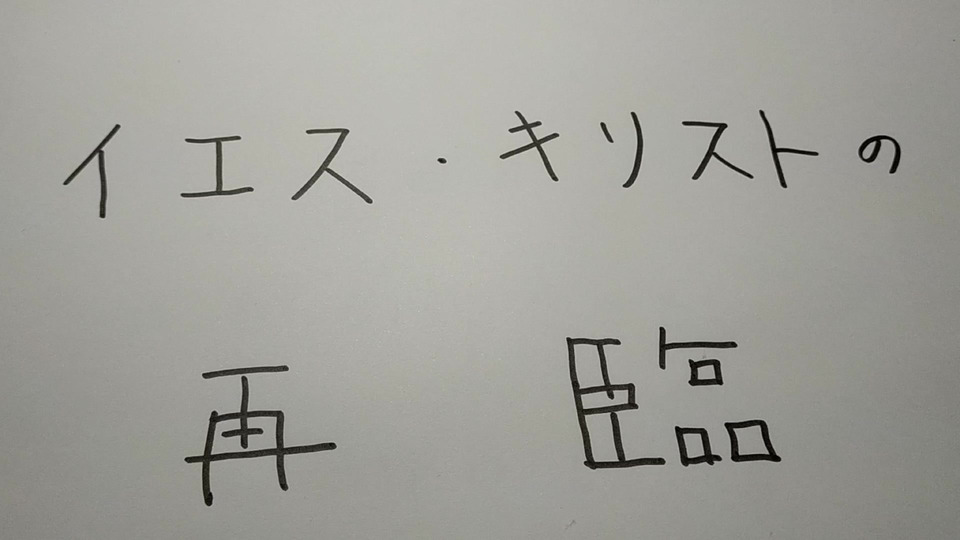 イエス・キリストの
再臨